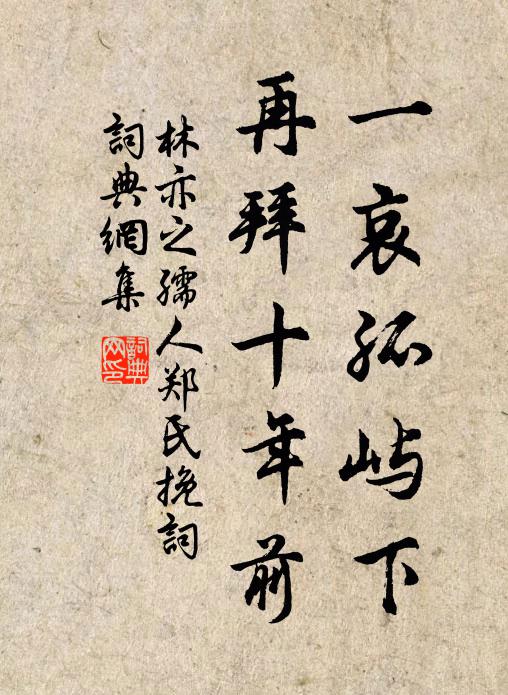 一哀孤屿下
再拜十年前
林亦之孺人郑氏挽詞
詞典網集
詞典网印